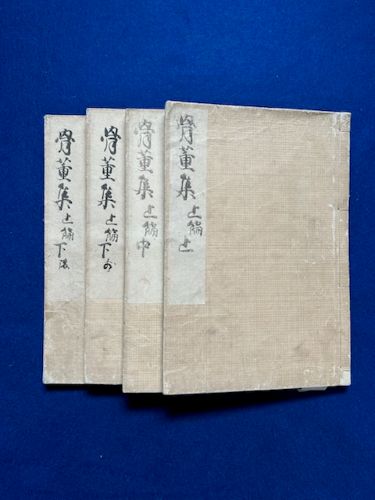 骨董集 上編 上
骨董集 上編 中
骨董集 上編 下前
骨董集 上編 下後